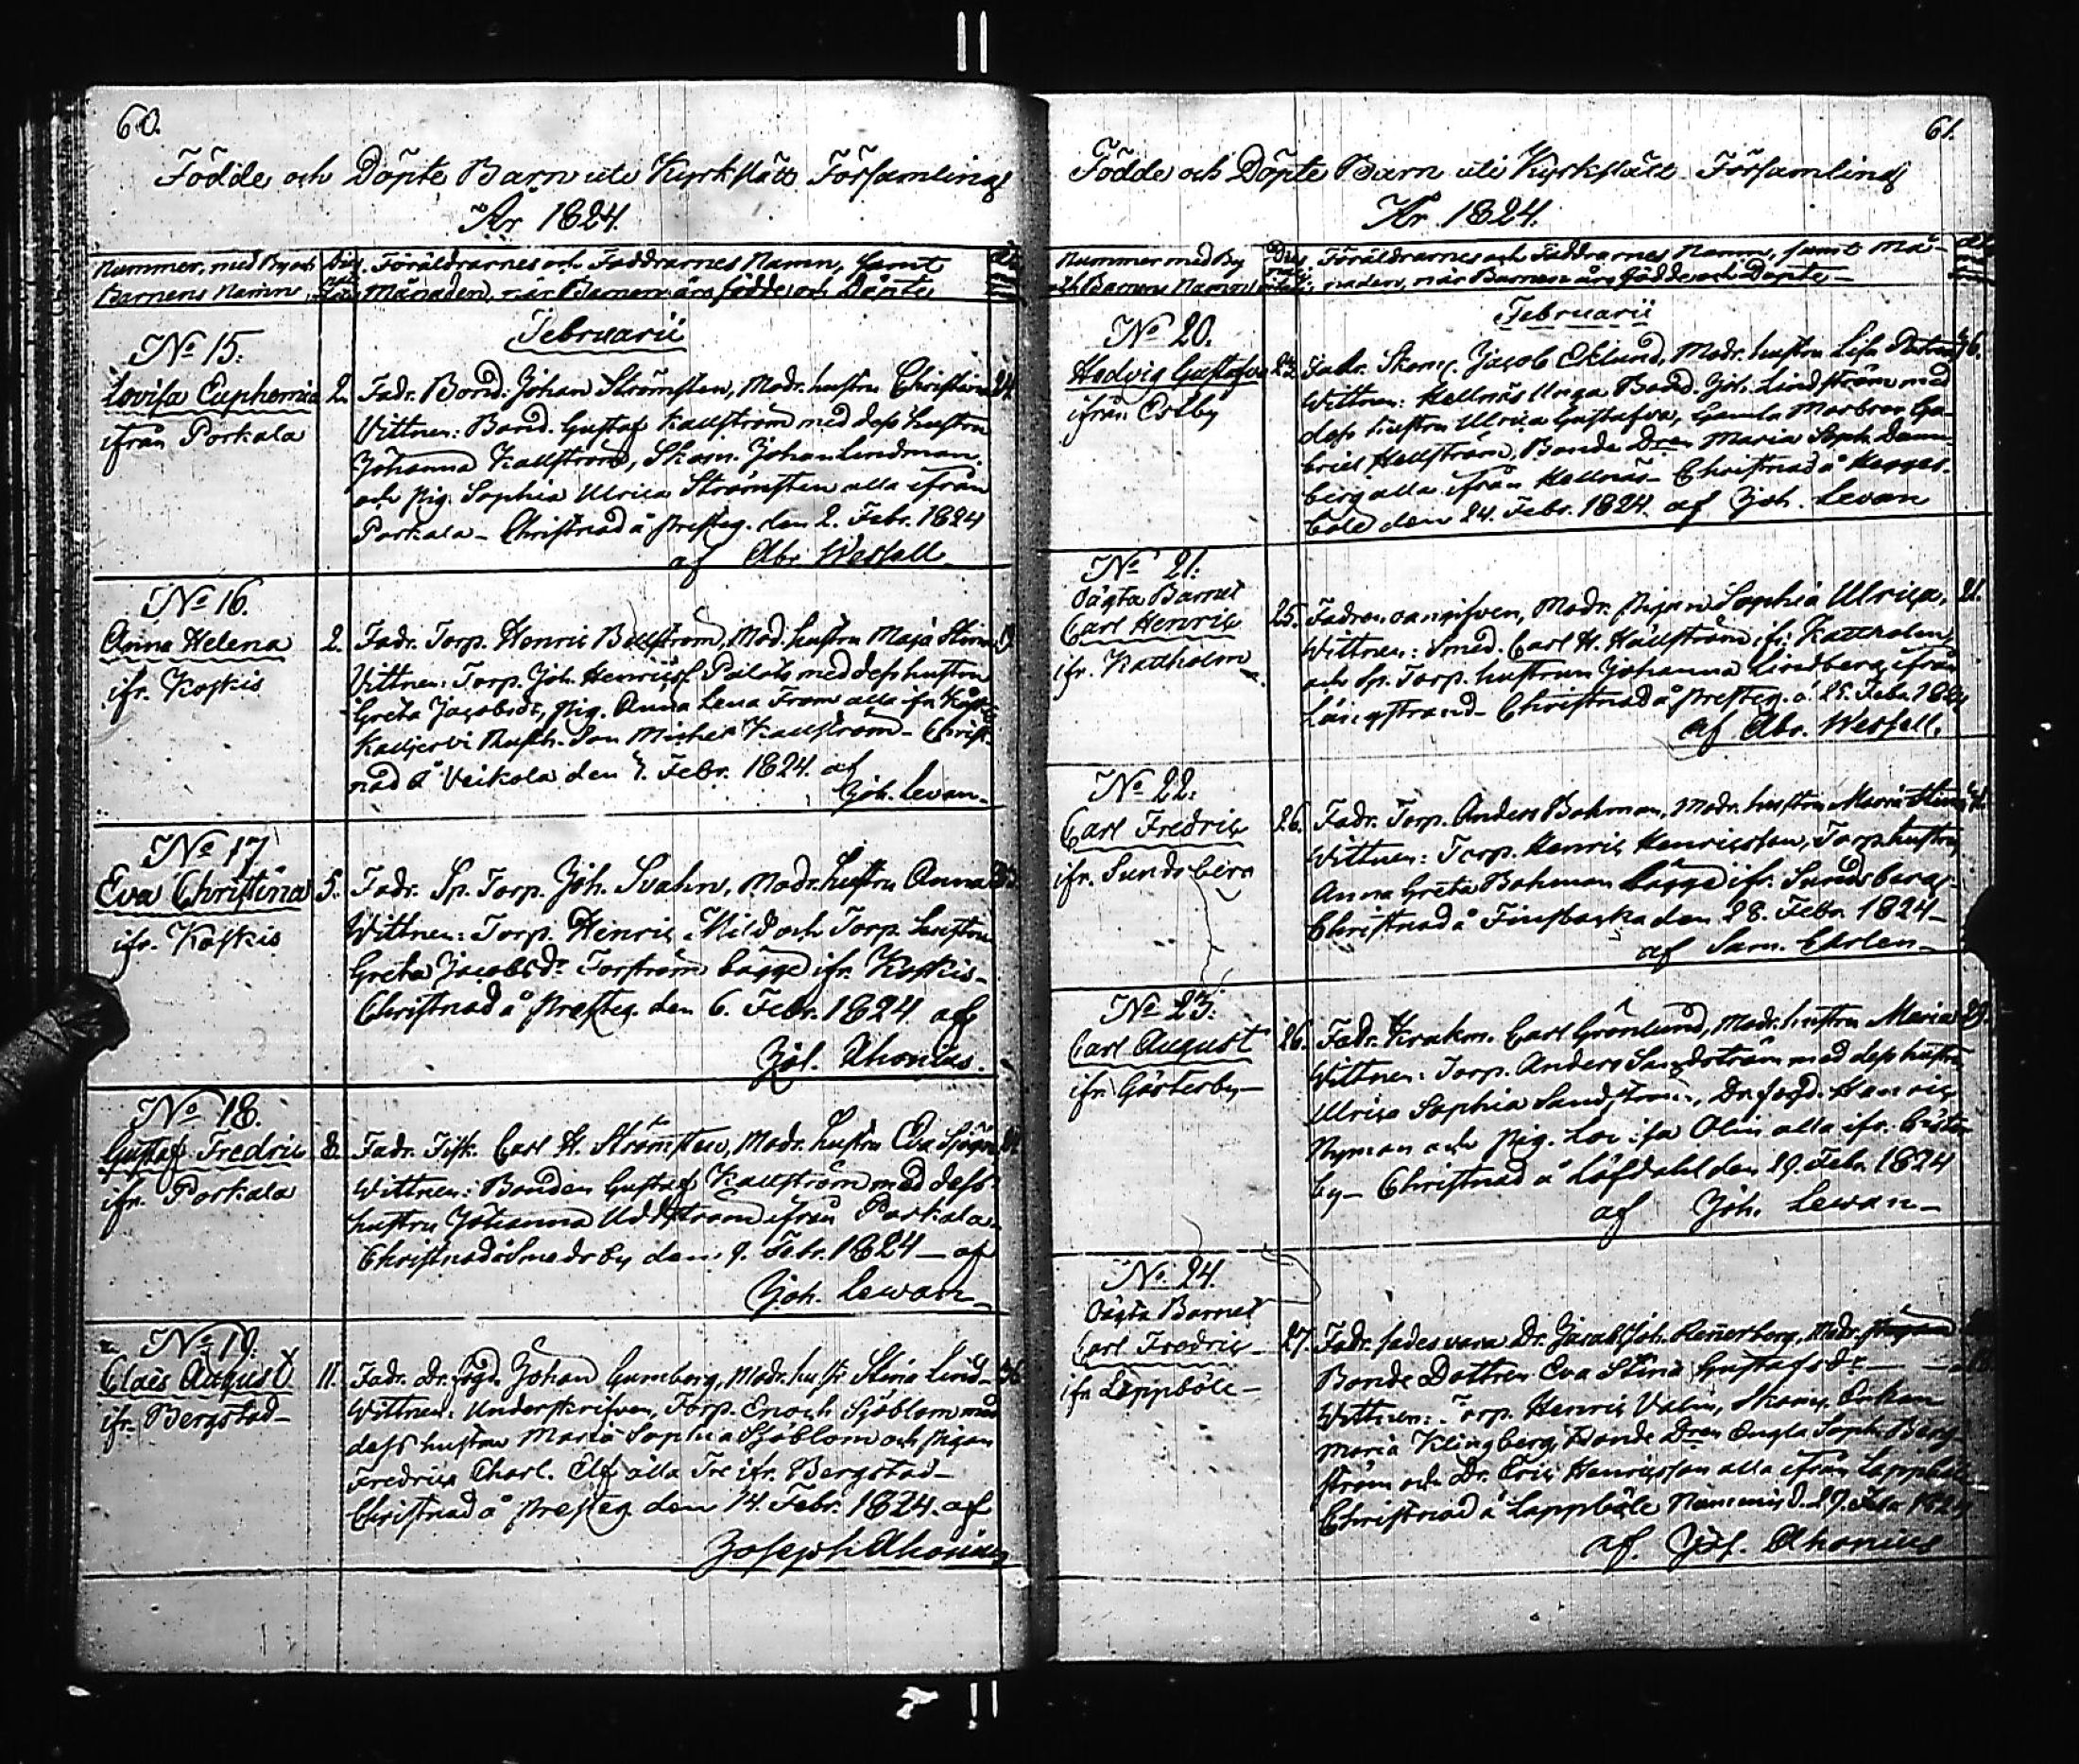 60.
Födde och Döpte Barn uti Kyrkslätt Församling
År 1824.
Nummer, med By och Föräldrarnes och Faddrarnes Namn, samt
Barnens Namn Månaden, när Barnen äro födde och Döpte
Februarii
No 15:
Lovisa Euphemia 2. Fadr. Bond. Johan Strömsten, Modr. hustru Christina 24.
ifrån Porkala Vittnen: Bond. Gustaf Kallström med dess hustru
Johanna Kallström, Skom. Johan Lindman
och pig. Sophia Ulrica Strömsten alla ifrån
Porkala – Christnad å Presteg. den 2. Febr. 1824
af Abr. Westfall
No 16.
Anna Helena 2. Fadr. Torp. Henric Bollström, Mod. hustru Maja Stina
ifr. Koskis Vittnen: Torp. Joh. Henricss. med dess hustru
Greta Jacobsdr, pig. Anna Lena From alla ifr.
Son Michel Kallström – Christ-
nad å Veikola den 7. Febr. 1824. af
Joh. Levan –
No 17
Eva Christina 5. Fadr. Sp. Torp. Joh. Svahn, Modr. hustru Anna
ifr. Koskis Wittnen: Torp. Henric Mild och Torp. hustru
Greta Jacobsdr Forström bägge ifr. Koskis –
Christnad å Presteg. den 6. Febr. 1824 af
Jos. Ahonius.
No 18.
Gustaf Fredric 8. Fadr. Fisk. Carl H. Strömsten, Modr. hustru Eva
ifr. Porkala Wittnen: Bonden Gustaf Kallström med dess
hustru Johanna Uddström ifrån Porkala –
Christnad å Smedsby den 9. Febr. 1824 – af
Joh. Lewan –
No 19:
Claës August 11. Fadr. Dr. fogd. Johan Gumberg, Modr. hustr. Stina Lind- 36
ifr. Bergstad – Wittnen: Underskrifven, Torp. Enoch Sjöblom med
dess hustru Maria Sophia Sjöblom och pigan
Fredrica Charl. Elf alla Tre ifr. Bergstad –
Christnad å Presteg. den 14. Febr. 1824. af
Joseph Ahonius
61.
Födde och Döpte Barn uti Kyrkslätt Församling
År 1824.
Nummer med By Föräldrarnes och Faddrarnes Namn, samt Må-
och Barnens Namn naden, när Barnen äro Födde och Döpte –
Februarii
No 20.
Hedvig Gustafva 23. Fadr. Skom. Jacob Eklund, Modr. hustru Lisa 36.
ifrån Estby Wittnen: Hellnäs Unga Bond. Joh. Lindström med
dess hustru Ulrica Gustafva, Gamla Morbron Ga-
briel Hellström, Bonde Dren Maria Soph. Dann-
berg alla ifrån Hellnäs – Christnad å Hegges-
böle den 24. Febr. 1824. af Joh. Levan
No 21:
Oägta Barnet
Carl Henric 25. Fadren oangifven, Modr. Pigan Sophia Ulrica, 21.
ifr. Kattholm Wittnen: Smed. Carl H. Hällström ifr. Kattholm
och Sp. Torp. hustrun Johanna Lindberg ifrån
Långstrand – Christnad å Presteg. d. 25. Febr. 1824
af Abr. Westfall.
No 22:
Carl Fredric 26. Fadr. Torp. Anders Bohman, Modr. hustru Maria Stina
ifr. Sundsberg Wittnen: Torp. Henric Henricsson, Torp. hustru
Anna Greta Bohman bägge ifr. Sundsberg –
Christnad å Finsbacka den 28. Febr. 1824 –
af Sam. Ehrlen –
No 23:
Carl August 26. Fadr. Krakm. Carl Grönlund, Modr. hustru Maria 29.
ifr. Gösterby – Wittnen: Torp. Anders Sandström med dess hustru
Ulrica Sophia Sandström, Dr. fogd. Henric
Nyman och pig. Lovisa Olin alla ifr. Göster-
by – Christnad å Löfdahl den 29. Febr. 1824
af Joh. Lewan –
No 24.
Oägta Barnet
Carl Fredric – 27. Fadr. sades vara Dr. Jacob Joh. Rennerberg, Modr.
ifr. Lappböle – Bonde Dottren Eva Stina Gustafsdr –
Wittnen: Torp. Henric Valin, Skom. Enkan
Maria Klingberg, Bonde Dren Engla Soph. Berg-
ström och Dr. Eric Henricsson alla ifrån Lappböle
Christnad å Lappböle d. 29. Febr. 1824
af. Jos. Ahonius